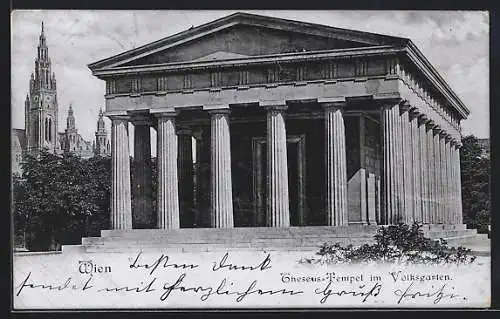 Wien Besten Dank
Theseus-Tempel im Volksgarten.
sendet mit herzlichem Gruß Fritz.